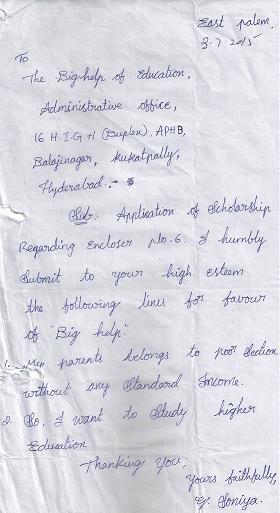 East palem,
3-7-2015
To
The Big-help of Education,
Administrative office,
16 H.I.G.H (Duplex), APHB,
Balajinagar, kukatpally,
Hyderabad.-
Sub: Application of Scholarship
Regarding Encloser No.6. I humbly
Submit to your high esteem
the following lines for favour
of "Big help"
1. My parents belongs to poor Section
without any Standard Income.
2. So, I want to Study higher
Education
Thanking You,
yours faithfully,
Soniya.